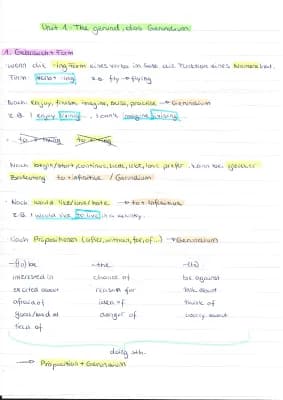 Unit 1: The gerund, das Gerundium
1. Gebrauch + Form
wenn die -ing Form eines verbs im Satz die Funktion eines Nomens hat.
Form: -ing, z.B. fly → flying
Nach enjoy, finish, imagine, miss, practise → Gerundium
z.B. I enjoy living ..., I can't imagine
Nach begin/start, continue, hate, like, love, prefer kann bei gleicher
Bedeutung to + infinitive / Gerundium
Nach would like/love/hate → to + infinitive
z.B. I would like to live in a
Nach Präpositionen (after, without, for, of ...) → Gerundium
-(to) be -the -(to)
interested in chance of be against
excited about reason for talk about
afraid of idea of think of
good/bad at danger of worry about
tired of
doing sth.
→ Preposition + Gerundium